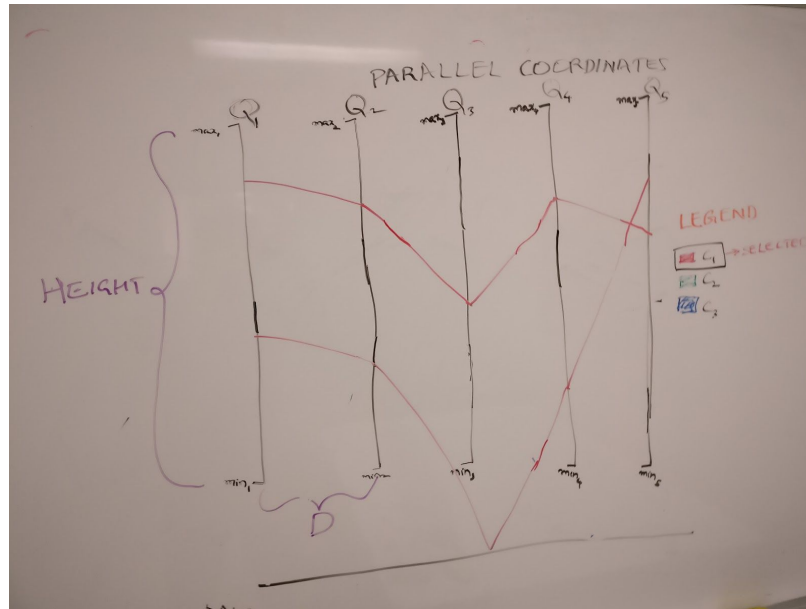 PARALLEL COORDINATES
Q1 Q2 Q3 Q4 Q5
max1 max2 max3 max4 max5
LEGEND
C1 → SELECTED
C2
C3
HEIGHT
min1 min3 min4 min5
D